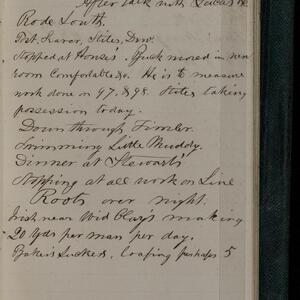 After talk with Lucas &c
Rode South.
Stopped at House's. Buck moved in new
room Comfortable &c. He is to measure
work done on 97, & 98. Stiles taking
possession today.
Down through Timber.
Swimming Little Muddy.
Dinner at Stewarts'
Stopping at all work on Line
Roots over night.
Irish near Wid Clays making
20 yds per man per day.
Suckers. Loafing perhaps 5